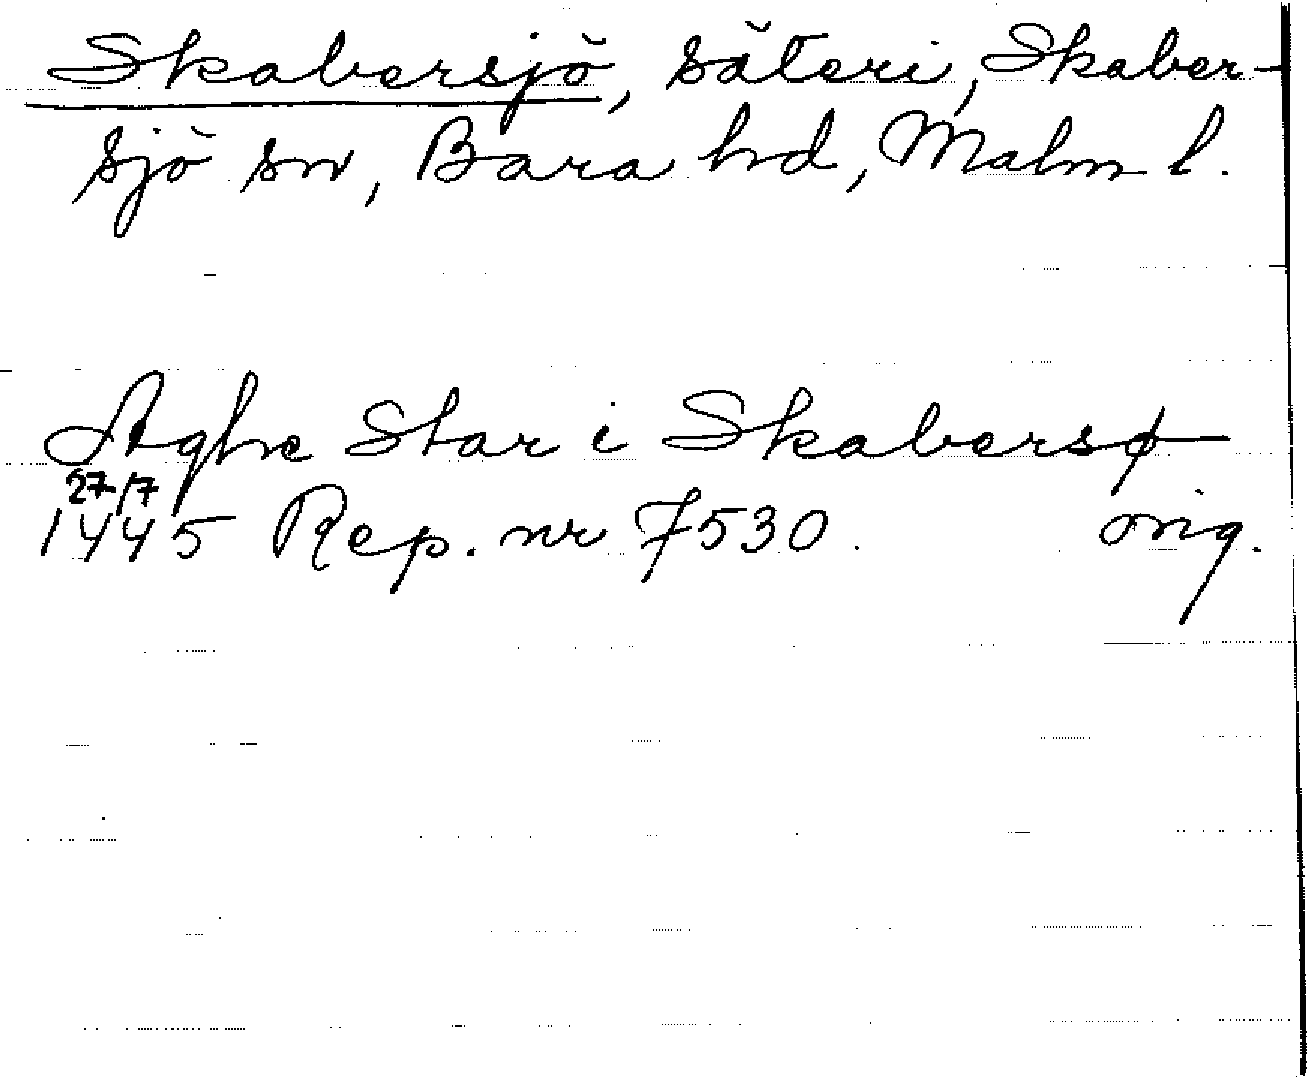 Skabersjö, säteri, Skaber-
sjö sn, Bara hd, Malm l.
Aghe Star i Skabersø
27/7
1445 Rep. nr 7530. orig.